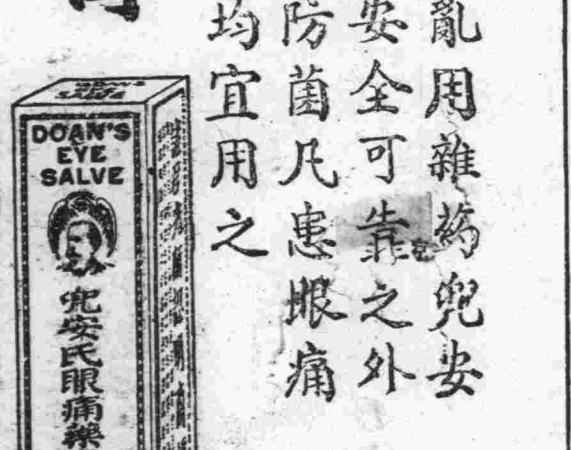 亂用雜药兜安
安全可靠之外
防菌凡患眼痛
均宜用之
DOAN'S
EYE
SALVE
兜安氏眼痛藥